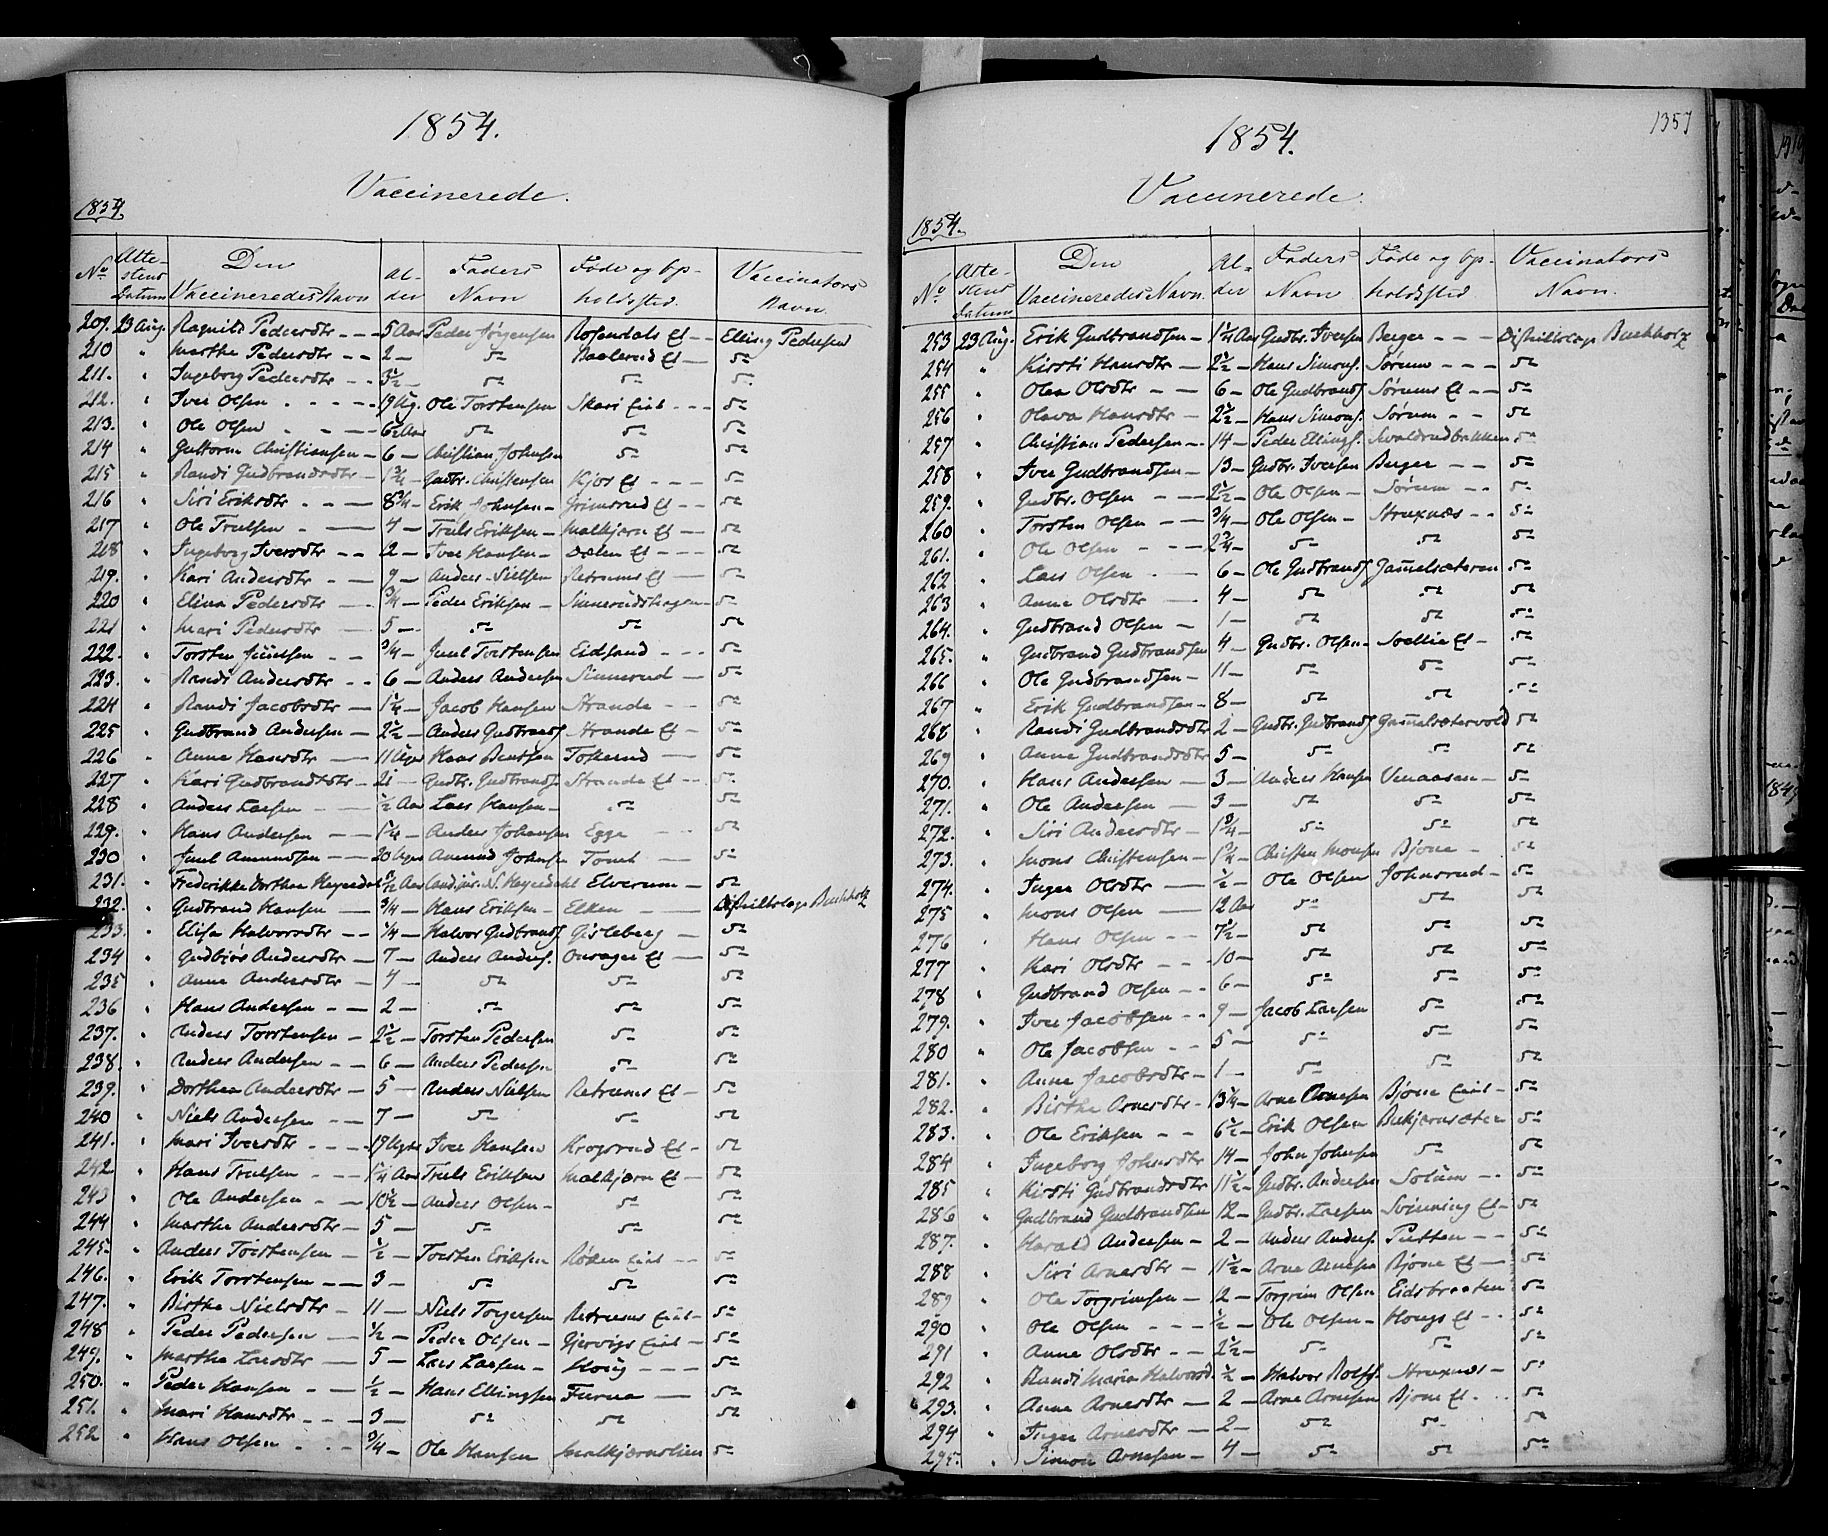 1854.
Vaccinerede.
1854.
No Attestens Datum Den Vaccineredes Navn Alder Faders Navn Føde og Opholdssted Vaccinators Navn.
209. 23 Aug. Ragnild Pedersdtr 5 Aar Peder Jörgensen Rosendals Et Elling Pedersen
210 " Marthe Pedersdtr 2 — do Et — do
211. " Ingeborg Pedersdtr 3½ — do do do
212. " Iver Olsen 19 Ug. Ole Torstensen Skari Eiet do
213. " Ole Olsen 6½ Aar do do do
214 " Guttorm Christiansen 6 — Christian Johnsen do do
215 " Randi Gudbrandsdtr 1¾ — Gudbr. Christensen Kjös Et do
216 " Siri Eriksdtr 8¾ — Erik Johnsen Grimsrud Et do
217 " Ole Trulsen 4 — Truls Eriksen Malkjern Et do
218 " Ingeborg Iversdtr 2 — Iver Hansen Dælen Et do
219. " Kari Andersdtr 9 — Anders Nielsen Retrums Et do
220 " Elina Pedersdtr ¾ — Peder Eriksen Sinnerudshagen do
221 " Mari Pedersdtr 5 — do do do
222. " Torsten Juulsen ¾ — Juul Torstensen Eidsand do
223. " Randi Andersdtr 6 — Anders Andersen Sinnerud do
224 " Randi Jacobsdtr 1¼ — Jacob Hansen Strande do
225 " Gudbrand Andersen 2½ — Anders Gudbrands Strande Et do
226 " Anne Hansdtr 11 Uger Hans Bentsen Tokerud do
227 " Kari Gudbrandsdtr 21 — Gudbr. Gudbrands. Strande Et do
228 " Anders Larsen ½ Aar Lars Hansen do do
229. " Hans Andersen 1¼ — Anders Johansen Egge do
230 " Juul Amundsen 20 Uger Amund Johns. do
231. " Frederikke Dorthea Heyerdal Aar N. Heyerdahl Elverum do
232. " Gudbrand Hansen ¾ — Hans Eriksen Elken Distriktslæge Buchholz
233. " Elisa Halvorsdtr ¼ — Halvor Gudbrands. Gisleberg do
234 " Gudbjör Andersdtr 7 — Anders Anders. Onsager Et do
235 " Anne Andersdtr 4 do do do
236 " Hans Andersen 2 — do do do
237. " Anders Torstensen 2½ — Torsten Pedersen do do
238. " Anders Andersen 6 — Anders Pedersen do do
239. " Dorthea Andersdtr 5 — Anders Nielsen Retrums Et do
240 " Niels Andersen 7 — do do do
241. " Mari Iversdtr 19 Uger Iver Hansen Krogsrud Et do
242 " Hans Trulsen 1¼ Aar Truls Eriksen Malkjern Et do
243 " Ole Andersen 10½ — Anders Olsen do do
244 " Marthe Andersdtr 5 — do do do
245. " Anders Torstensen ½ — Torsten Eriksen Eiet do
246. " Erik Torstensen 3 — do do do
247. " Birthe Nielsdtr 11 — Niels Torgersen Retrums Eiet do
248 " Peder Pedersen ½ — Peder Olsen Gjervigs Eiet do
249. " Marthe Larsdtr 5 — Lars Larsen Houg do
250. " Peder Hansen ½ — Hans Ellingsen Furua do
251. " Mari Hansdtr 3 — do do do
252 " Hans Olsen ¾ — Ole Hansen Malkjernslien do
1357
1854.
Vaccinerede.
1854.
No Attestens Datum Den Vaccineredes Navn. Alder Faders Navn Føde og Opholdssted Vaccinators Navn.
253 23 Aug. Erik Gudbrandsen 1¼ Aar Gudbr. Iversen Berger Distriktslæge Buchholz
254 " Kirsti Hansdtr 2½ — Hans Simons. Sörum do
255 " Olea Olsdtr 6 — Ole Gudbrands Sörums Et do
256 " Olava Hansdtr 2½ — Hans Simons. Sörum do
257 " Christian Pedersen 14 — Peder Ellings. Svaldrudbakken do
258 " Iver Gudbrandsen 13 — Gudbr. Iversen Berger do
259. " Gudbr. Olsen 2½ — Ole Olsen Sörum do
260 " Torsten Olsen ¾ — Ole Olsen Struxnæs do
261. " Ole Olsen 2¾ — do do do
262 " Lars Olsen 6 — Ole Gudbrands Gamelsæteren do
263 " Anne Olsdtr 4 — do do do
264. " Gudbrand Olsen 1 — do do do
265. " Gudbrand Gudbrandsen 4 — Gudbr. Olsen Sollie Et do
266 " Ole Gudbrandsen 11 — do do do
267 " Erik Gudbrandsen 8 — do do do
268 " Randi Gudbrandsdtr 2 — Gudbr. Gudbrands Gamelsætervold do
269 " Anne Gudbrandsdtr 5 — do do do
270. " Hans Andersen 3 — Anders Hansen Venaasen do
271. " Ole Andersen 3 — do do do
272. " Siri Andersdtr 1¾ — do do do
273. " Mons Christensen 1¼ — Christen Monsen Bjone do
274. " Inger Olsdtr ½ — Ole Olsen Johnsrud do
275 " Mons Olsen 12 Aar do do do
276 " Hans Olsen 7½ — do do do
277 " Kari Olsdtr 10 — do do do
278 " Gudbrand Olsen 6 — do do do
279. " Iver Jacobsen 9 — Jacob Larsen do do
280 " Ole Jacobsen 5 — do do do
281. " Anne Jacobsdtr 1 — do do do
282. " Birthe Arnesdtr 13¼ — Arne Arnesen Bjone Eiet do
283. " Ole Eriksen 6½ — Erik Olsen Bukjernsæter do
284 " Ingeborg Johnsdtr 14 — John Johnsen do do
285 " Kirsti Gudbrandsdtr 11½ — Gudbr. Andersen Solum do
286 " Gudbrand Gudbrandsen 12 — Gudbr. Larsen Sörensing Et do
287. " Harald Andersen 2 — Anders Anders. Putten do
288 " Siri Arnesdtr 11½ — Arne Arnesen Bjone Et do
289 " Ole Torgrimsen 2 — Torgrim Olsen Eidsbraaten do
290 " Ole Olsen ½ — Ole Olsen Hougs Et do
291 " Anne Olsdtr 2½ — do do do
292 " Randi Maria Halvorsd. ½ — Halvor Rolfs. Struxnæs do
293. " Anne Arnesdtr 2 — Arne Arnesen Bjone Et do
294 " Inger Arnesdtr 2 — do do do
295. " Simon Arnesen 4 — do do do